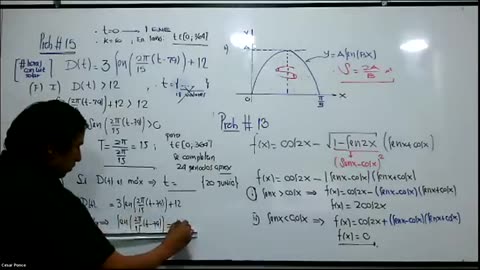 Prob # 15
• t=0 → 1 ENERO
t∈[0,364]
# horas con luz solar
D(t) = 3 sen(2π/15 (t-79)) + 12
(F) I) D(t) > 12
(2π/15 (t-79)) + 12 > 12
sen(2π/15 (t-79)) > 0
T = 2π / (2π/15) = 15 ;
para t∈[0,364]
se completan
24 periodos aprox
Si D(t) es máx ⇒ t = (20 JUNIO)
= 3 sen(2π/15 (t-79)) + 12
⇒ sen(2π/15 (t-79)) =
II)
y
A
0
π/B
x
y = A sen(Bx)
S = 2A/B
Prob # 13
f(x) = cos2x - √(1-sen2x) (senx+cosx)
(senx-cosx)²
f(x) = cos2x - |senx-cosx| (senx+cosx)
i) senx>cosx ⇒ f(x) = cos2x - (senx-cosx)(senx+cosx)
f(x) = 2cos2x
ii) senx<cosx ⇒ f(x) = cos2x + (senx-cosx)(senx+cosx)
f(x) = 0
Cesar Ponce